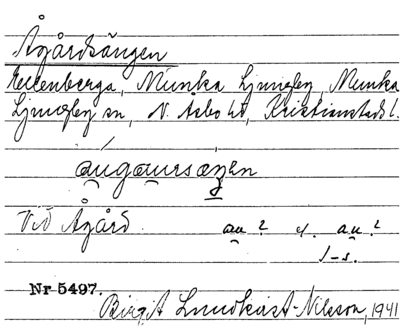 Ågårdsängen
Eelenberga, Munka Ljungby, Munka
Ljungby sn, N. Åsbo hd, Kristianstads l.
áu̯gau̯ursæŋ̱en
Vid Ågård. au̯? el. au̯?
J-s.
Nr 5497.
Birgit Lundkvist-Nilsson, 1941